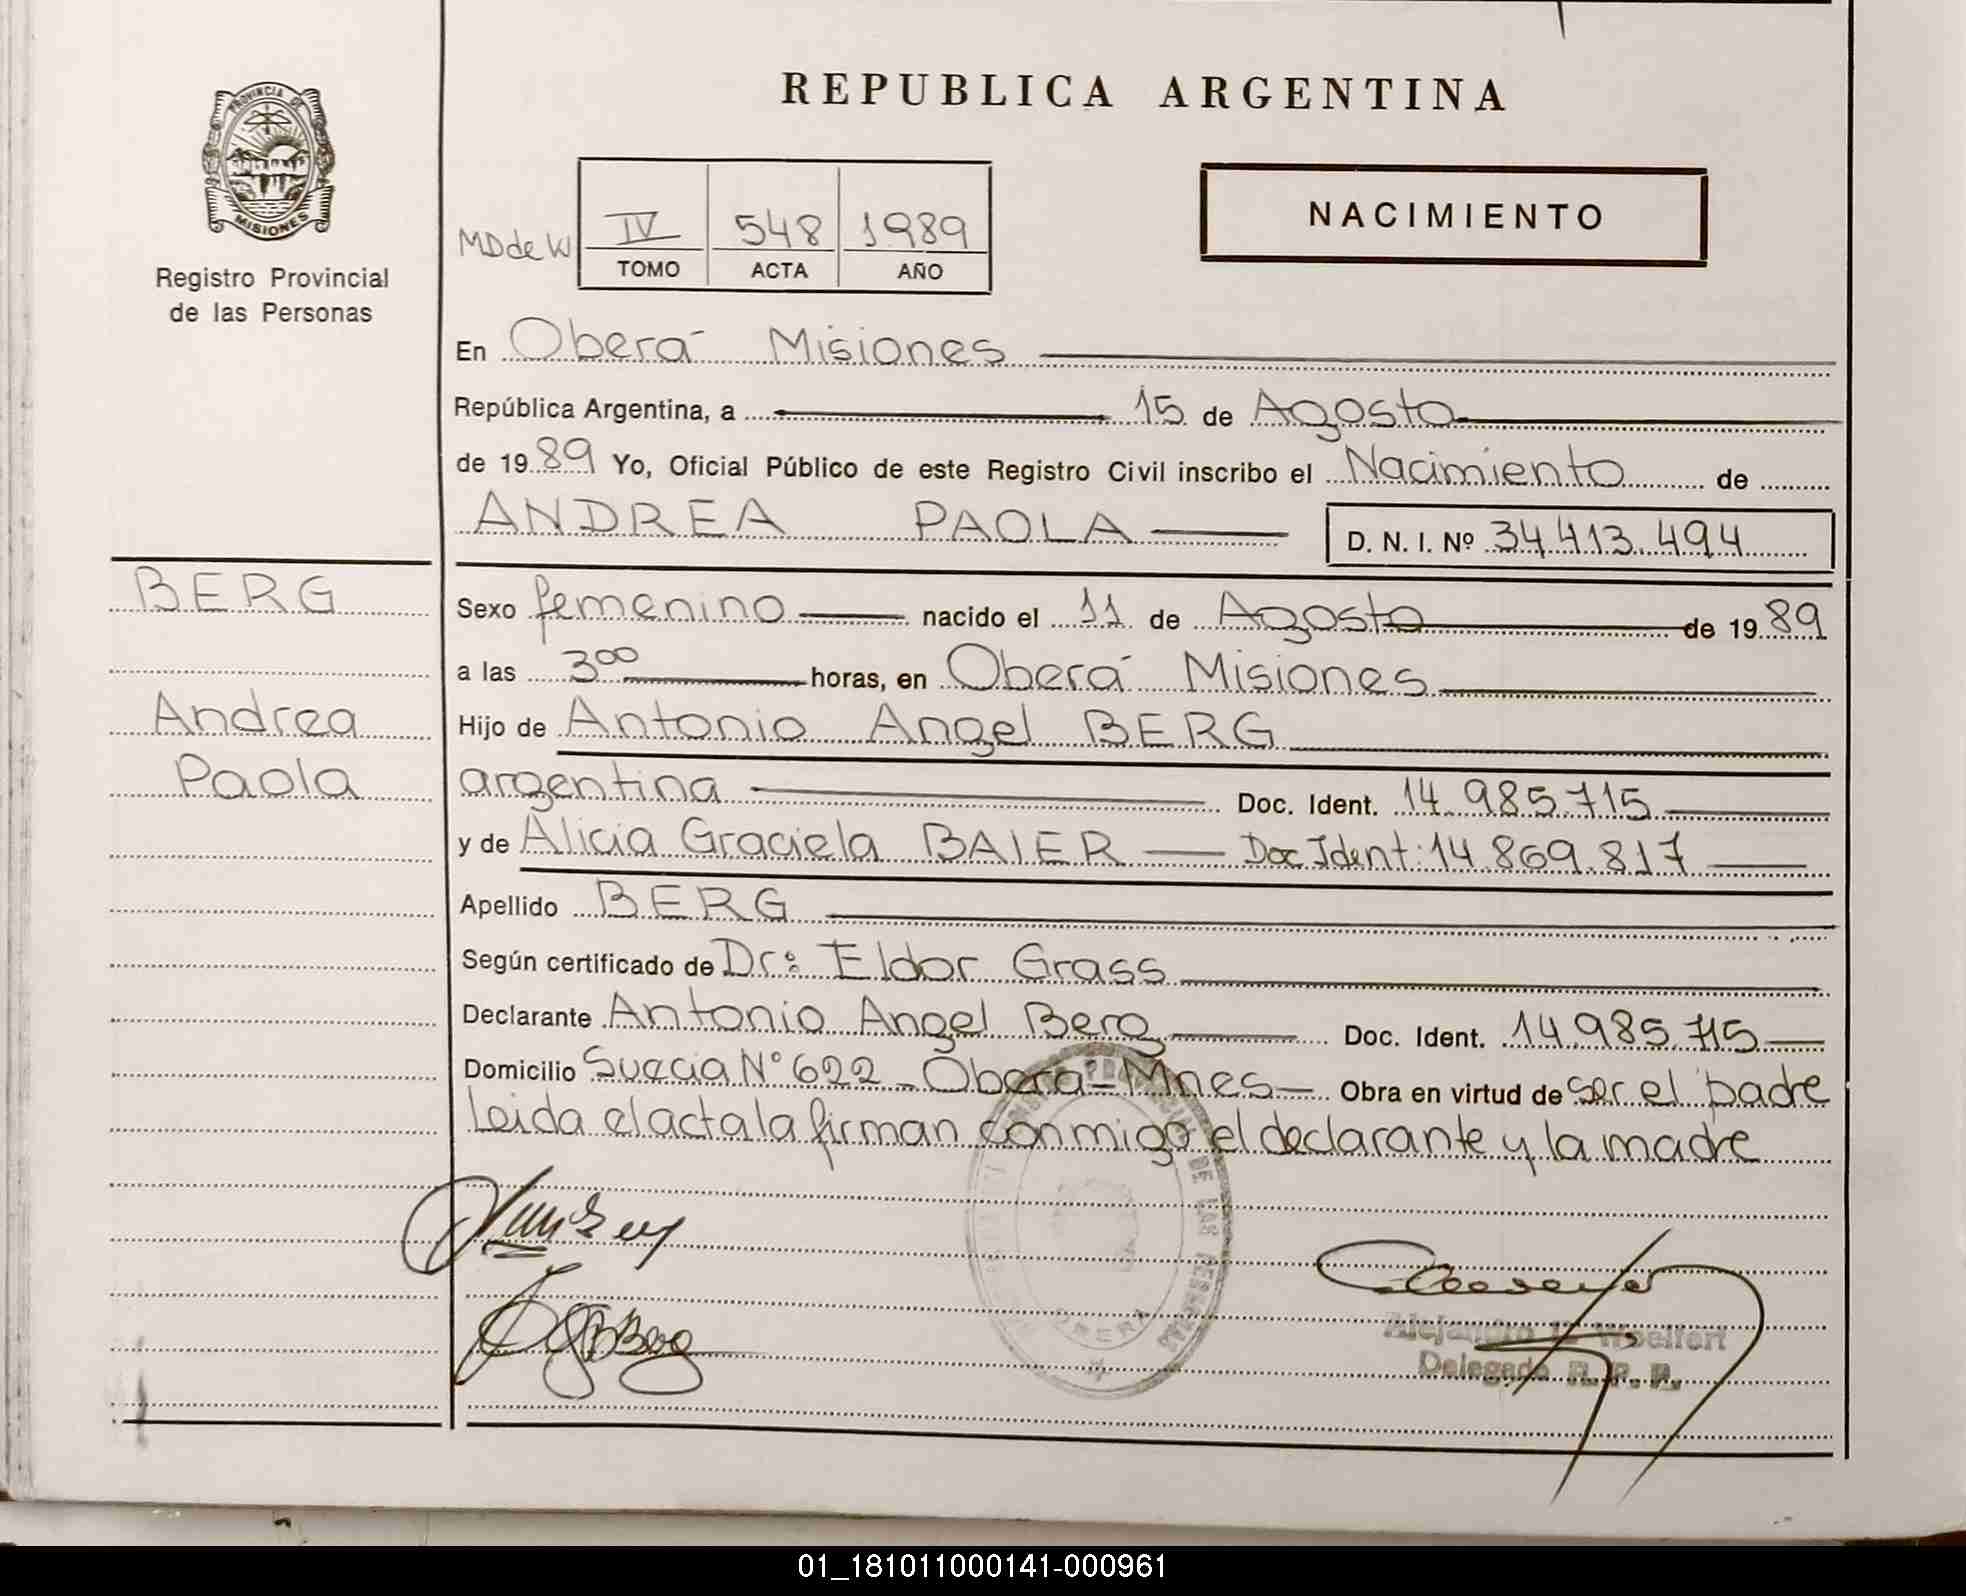 REPUBLICA ARGENTINA
PROVINCIA DE
MISIONES
Registro Provincial
de las Personas
MD de W
IV 548 1989
TOMO ACTA AÑO
NACIMIENTO
En Oberá Misiones
República Argentina, a 15 de Agosto
de 1989 Yo, Oficial Público de este Registro Civil inscribo el Nacimiento de
ANDREA PAOLA D. N. I. Nº 34.413.494
BERG
Sexo femenino nacido el 11 de Agosto de 1989
a las 3⁰⁰ horas, en Oberá Misiones
Andrea
Hijo de Antonio Angel BERG
Paola
argentina Doc. Ident. 14.985.715
y de Alicia Graciela BAIER Doc Ident: 14.869.817
Apellido BERG
Según certificado de Dr: Eldor Grass
Declarante Antonio Angel Berg Doc. Ident. 14.985.715
Domicilio Suecia N° 622 - Oberá - Mnes - Obra en virtud de ser el padre
Leida el acta la firman conmigo el declarante y la madre
DE LAS PERSONAS
OBERA
Alejandro Woelfert
Delegado R. P. P.
01_181011000141-000961